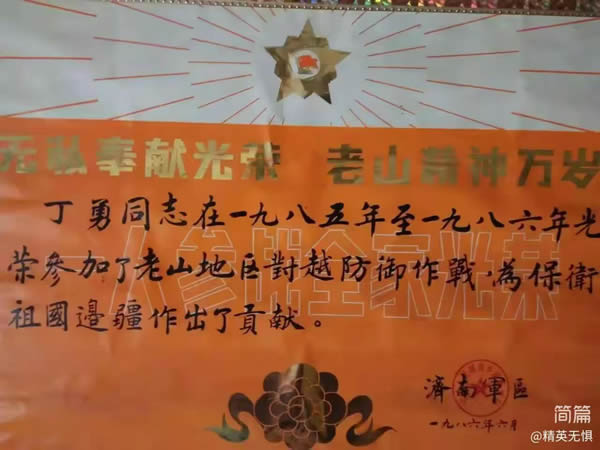 无私奉献光荣 老山精神万岁
一人参战全家光荣
丁勇同志在一九八五年至一九八六年光
荣参加了老山地区對越防御作戰，為保衛
祖國邊疆作出了貢献。
濟南軍區
一九八六年六月
简篇
@精英无惧